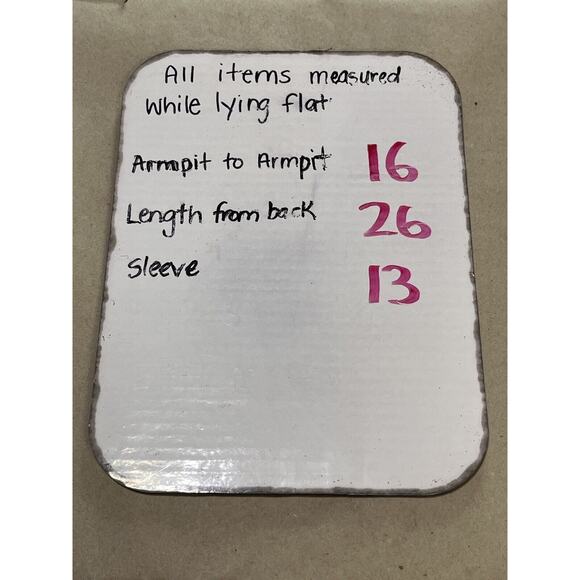 All items measured
while lying flat
Armpit to Armpit 16
Length from back 26
Sleeve 13